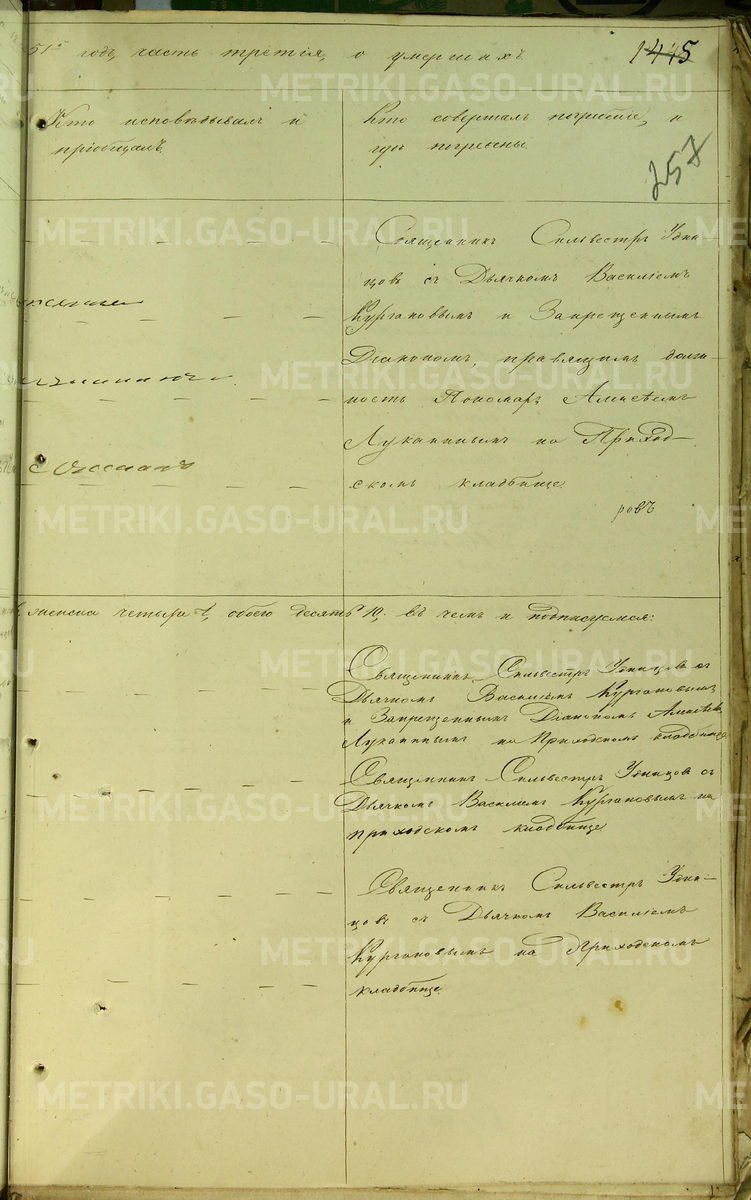 51го годъ, часть третія, о умершихъ
1445
Кто исповѣдывалъ и
пріобщалъ.
Кто совершалъ погребеніе, и
гдѣ погребены
257
Священникъ Сильвестръ Удин-
цовъ съ Дьячкомъ Василіемъ
Кургановымъ и Запрещеннымъ
Діакономъ, правящимъ долж-
ность Пономаря Алексѣемъ
Луканинымъ на Приход-
скомъ кладбище
ровъ
женска четыри 4, обоего десять 10, въ чемъ и подписуемся:
Священникъ Сильвестръ Удинцовъ съ
Дьячкомъ Василіемъ Кургановымъ
и Запрещеннымъ Діакономъ Алексѣемъ
Луканинымъ на Приходскомъ кладбище
Священникъ Сильвестръ Удинцовъ съ
Дьячкомъ Василіемъ Кургановымъ на
приходскомъ кладбище
Священникъ Сильвестръ Удин-
цовъ съ Дьячкомъ Василіемъ
Кургановымъ на Приходскомъ
кладбище
METRIKI.GASO-URAL.RU